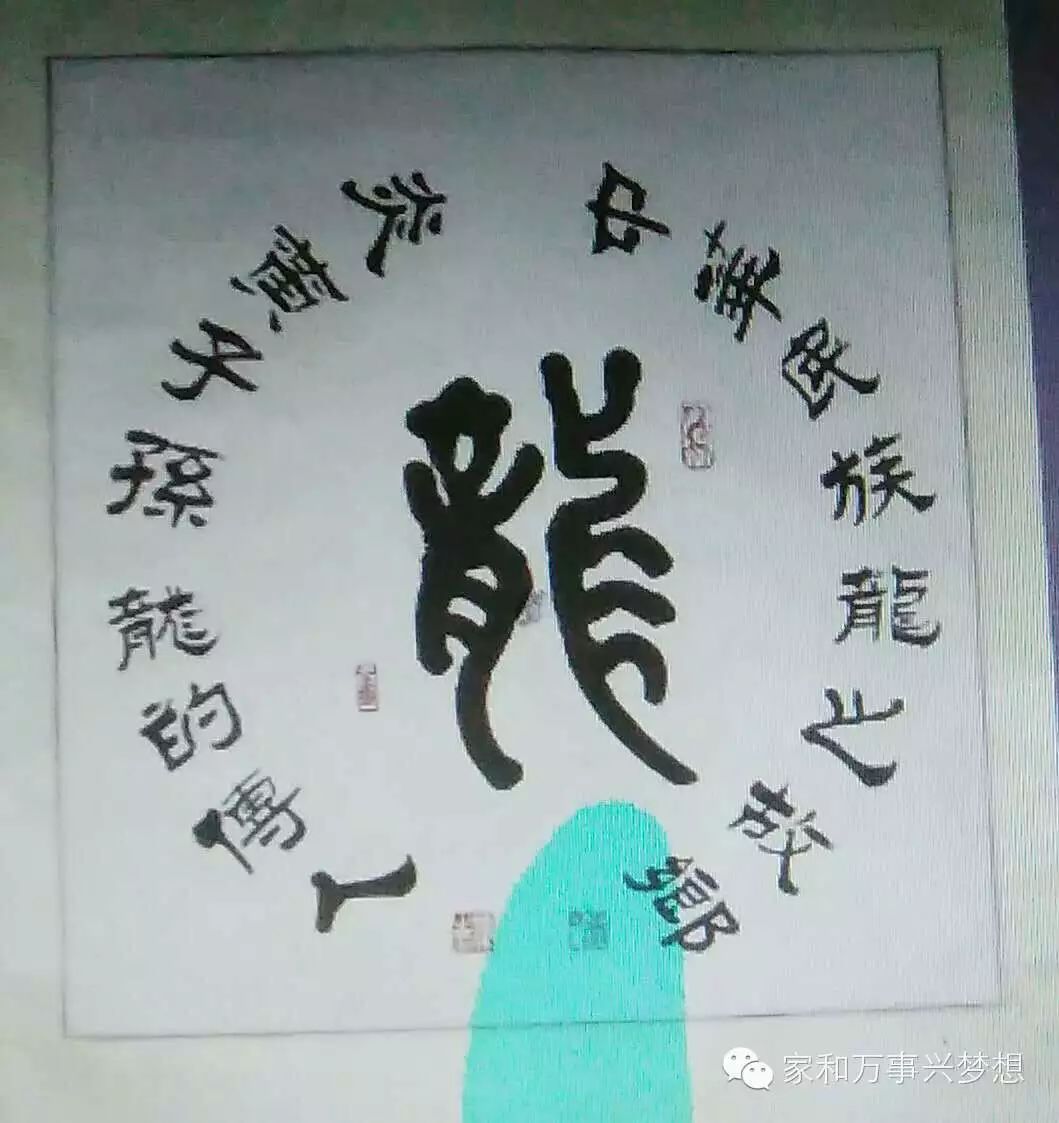 龍
中華民族龍之故鄉
炎黃子孫龍的傳人
家和万事兴梦想